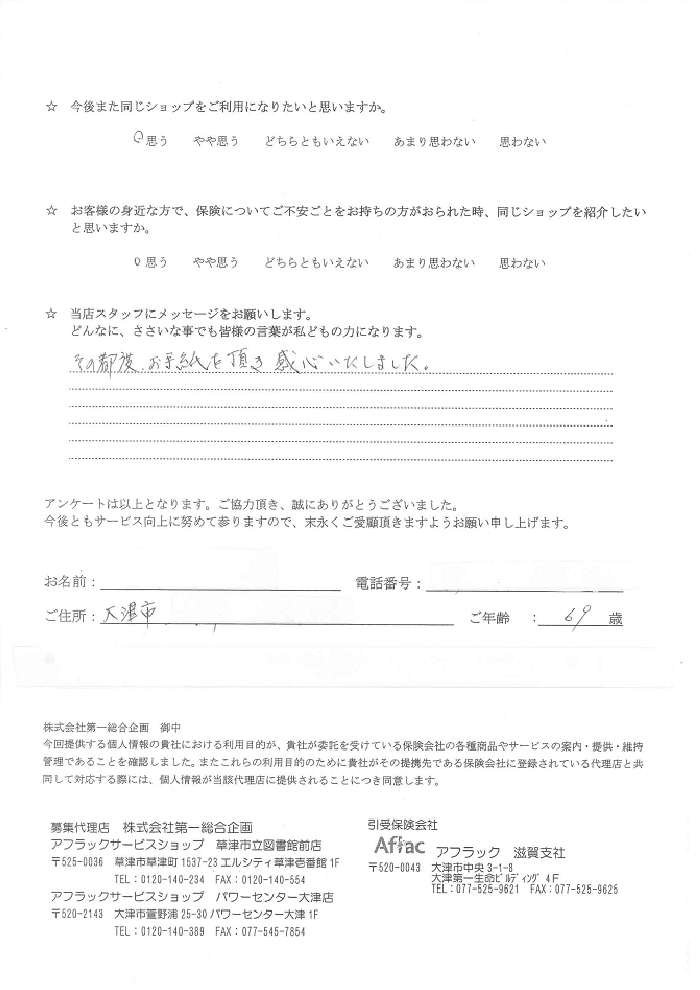 ☆ 今後また同じショップをご利用になりたいと思いますか。
思う やや思う どちらともいえない あまり思わない 思わない
☆ お客様の身近な方で、保険についてご不安ごとをお持ちの方がおられた時、同じショップを紹介したい
と思いますか。
思う やや思う どちらともいえない あまり思わない 思わない
☆ 当店スタッフにメッセージをお願いします。
どんなに、ささいな事でも皆様の言葉が私どもの力になります。
その都度、お手紙を頂き感心いたしました。
アンケートは以上となります。ご協力頂き、誠にありがとうございました。
今後ともサービス向上に努めて参りますので、末永くご愛顧頂きますようお願い申し上げます。
お名前: 電話番号:
ご住所: 大津市 ご年齢 : 69 歳
株式会社第一総合企画 御中
今回提供する個人情報の貴社における利用目的が、貴社が委託を受けている保険会社の各種商品やサービスの案内・提供・維持
管理であることを確認しました。またこれらの利用目的のために貴社がその提携先である保険会社に登録されている代理店と共
同して対応する際には、個人情報が当該代理店に提供されることにつき同意します。
募集代理店 株式会社第一総合企画
アフラックサービスショップ 草津市立図書館前店
〒525-0036 草津市草津町1537-23エルシティ草津壱番館1F
TEL:0120-140-234 FAX:0120-140-554
アフラックサービスショップ パワーセンター大津店
〒520-2143 大津市萱野浦25-30パワーセンター大津1F
TEL:0120-140-389 FAX:077-545-7854
引受保険会社
Aflac アフラック 滋賀支社
〒520-0043 大津市中央3-1-8
大津第一生命ビルディング4F
TEL:077-525-9621 FAX:077-525-9625